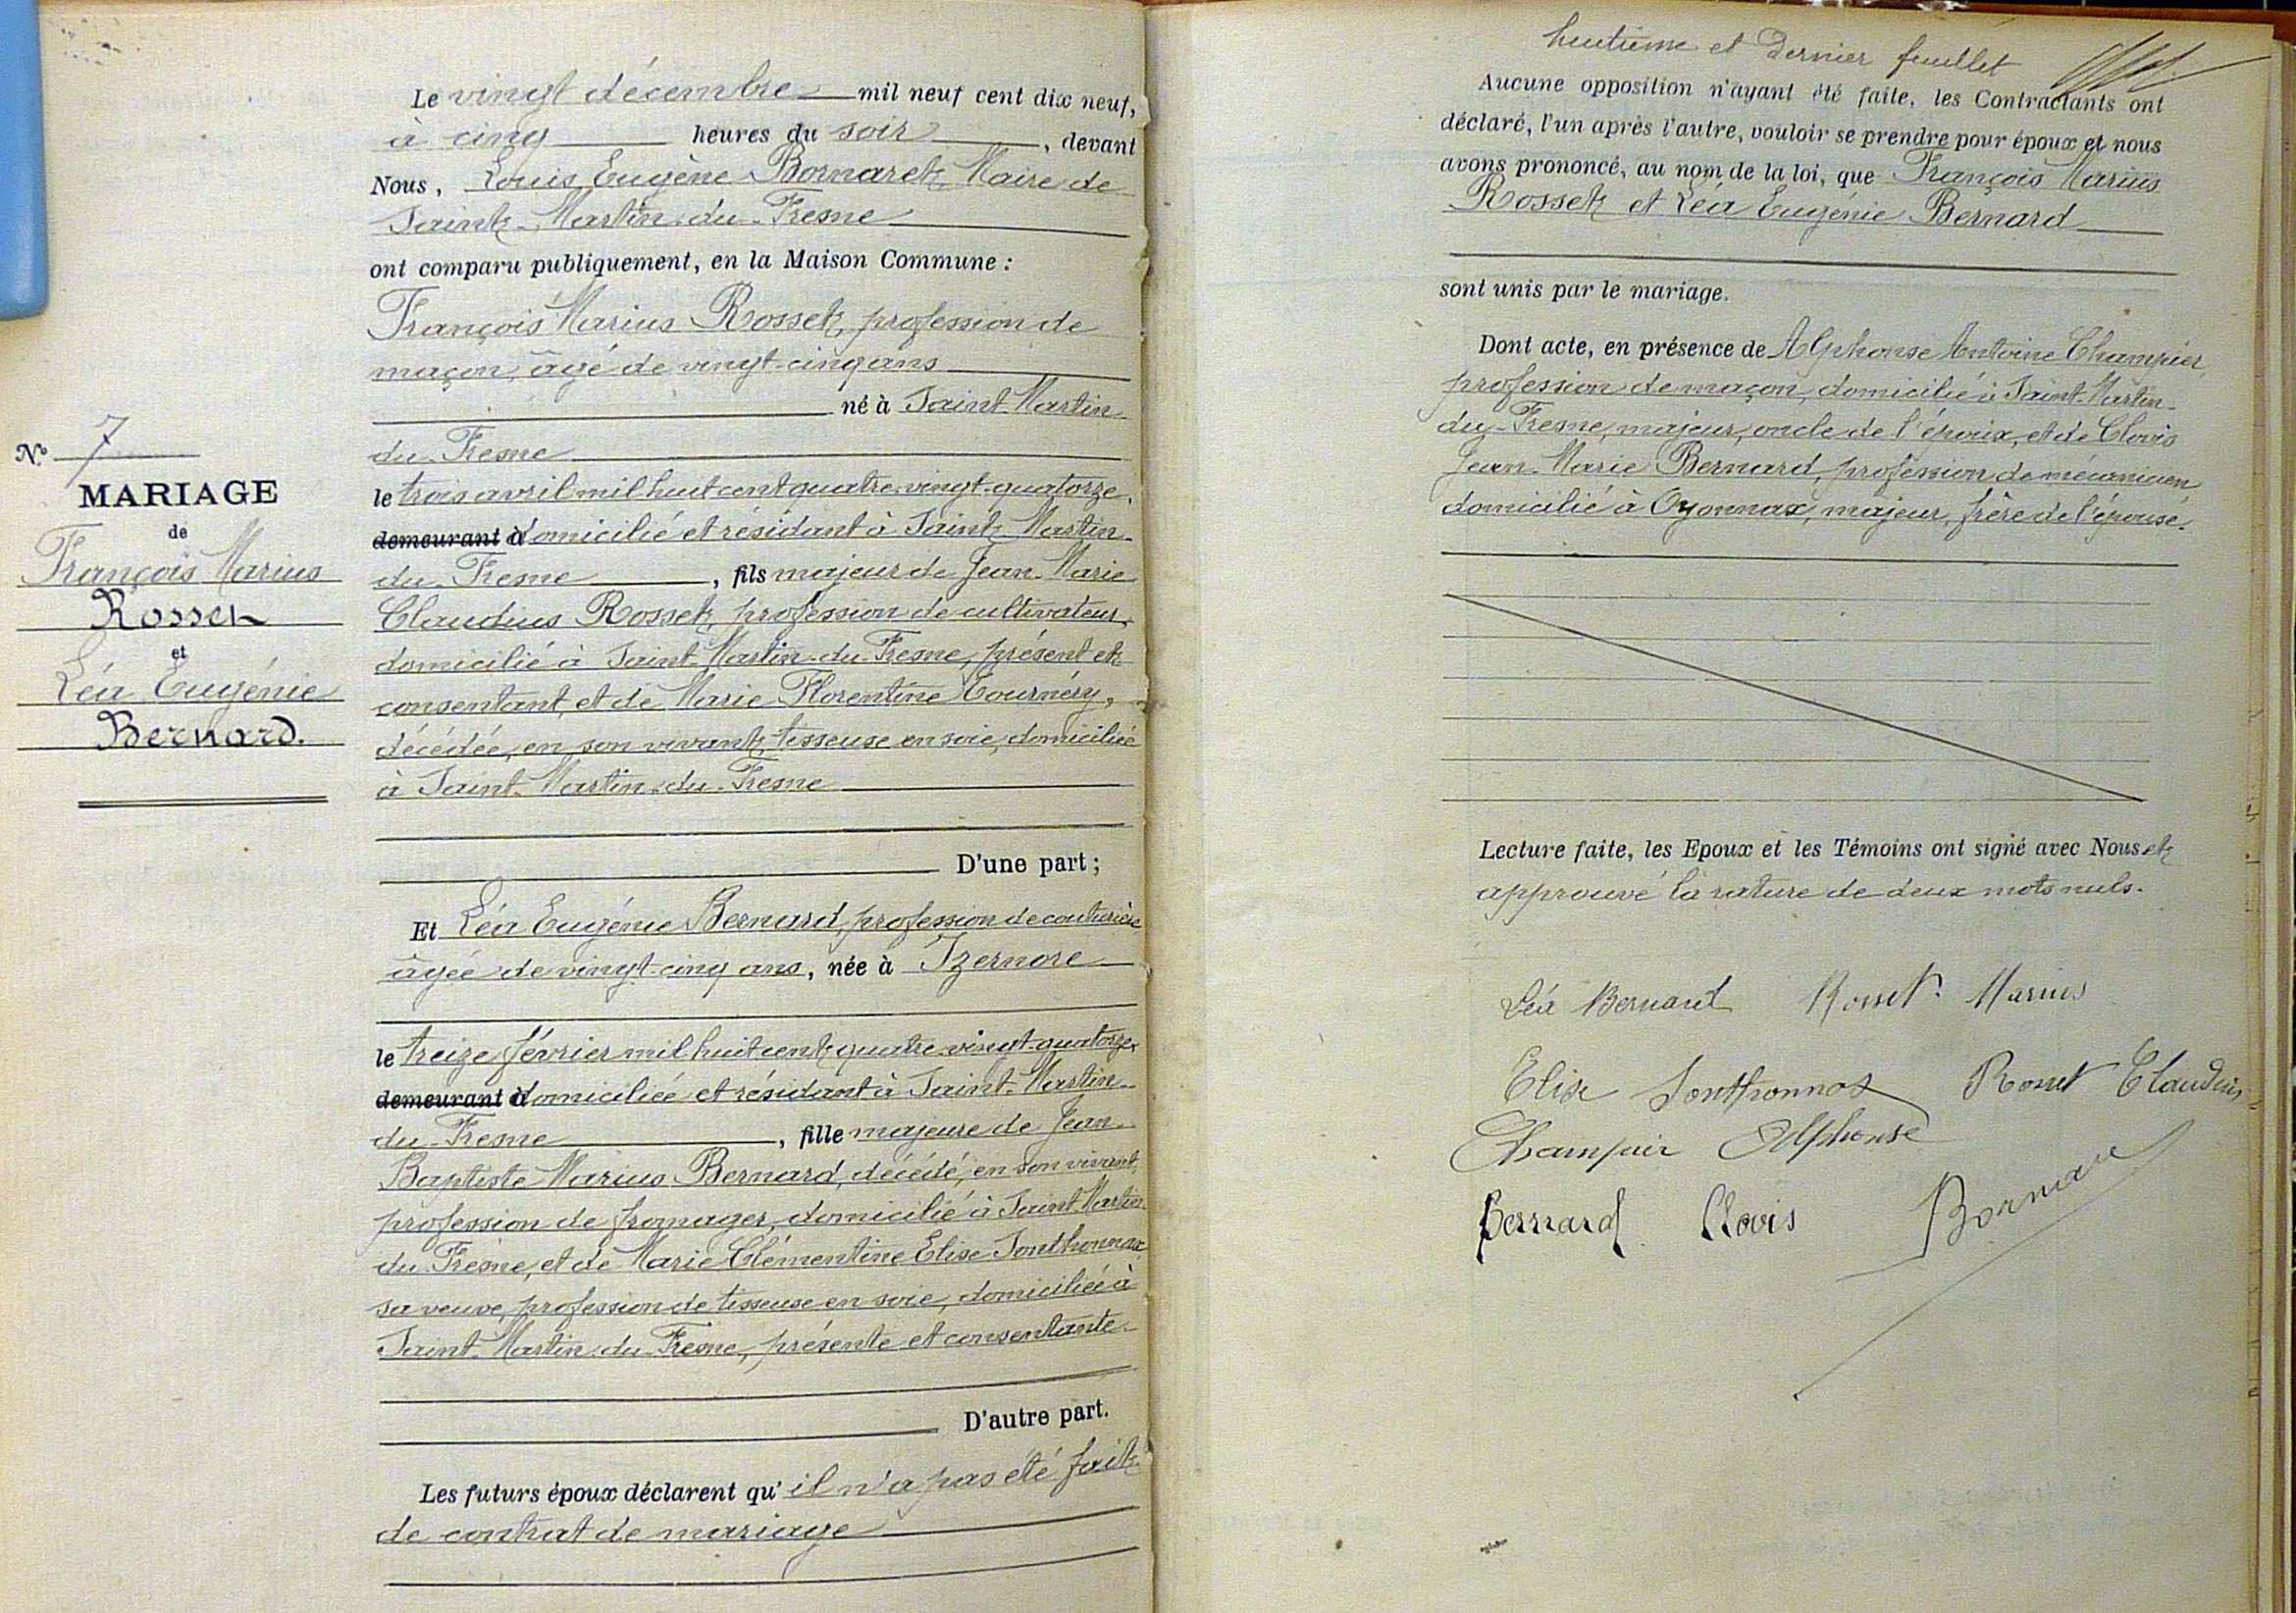 Le vingt décembre mil neuf cent dix neuf,
à cinq heures du soir, devant
Nous, Louis Eugène Bornaret, Maire de
Saint-Martin-du-Fresne
ont comparu publiquement, en la Maison Commune :
François Marius Rosset, profession de
maçon, âgé de vingt-cinq ans
né à Saint-Martin-
du-Fresne
le trois avril mil huit cent quatre-vingt-quatorze,
demeurant à domicilié et résidant à Saint-Martin-
du-Fresne, fils majeur de Jean-Marie
Claudius Rosset, profession de cultivateur,
domicilié à Saint-Martin-du-Fresne, présent et
consentant, et de Marie Florentine Tournéry,
décédée, en son vivant, tisseuse en soie, domiciliée
à Saint-Martin-du-Fresne
D'une part ;
Et Léa Eugénie Bernard, profession de couturière
âgée de vingt-cinq ans, née à Izernore
le treize février mil huit cent quatre-vingt-quatorze,
demeurant à domiciliée et résidant à Saint-Martin-
du-Fresne, fille majeure de Jean-
Baptiste Marius Bernard, décédé, en son vivant,
profession de fromager, domicilié à Saint-Martin-
du-Fresne, et de Marie Clémentine Elise Jonthonnax
sa veuve, profession de tisseuse en soie, domiciliée à
Saint-Martin-du-Fresne, présente et consentante.
D'autre part.
Les futurs époux déclarent qu'il n'a pas été fait
de contrat de mariage
N° 7
MARIAGE
de
François Marius
Rosset
et
Léa Eugénie
Bernard.
huitième et dernier feuillet
Aucune opposition n'ayant été faite, les Contractants ont
déclaré, l'un après l'autre, vouloir se prendre pour époux et nous
avons prononcé, au nom de la loi, que François Marius
Rosset et Léa Eugénie Bernard
sont unis par le mariage.
Dont acte, en présence de Alphonse Antoine Champier,
profession de maçon, domicilié à Saint-Martin-
du-Fresne, majeur, oncle de l'époux, et de Clovis
Jean-Marie Bernard, profession de mécanicien
domicilié à Oyonnax, majeur, frère de l'épouse.
Lecture faite, les Epoux et les Témoins ont signé avec Nous et
approuvé la rature de deux mots nuls.
Léa Bernard Rosset Marius
Elise Jonthonnax Rosset Claudius
Champier Alphonse
Bernard Clovis Bornaret